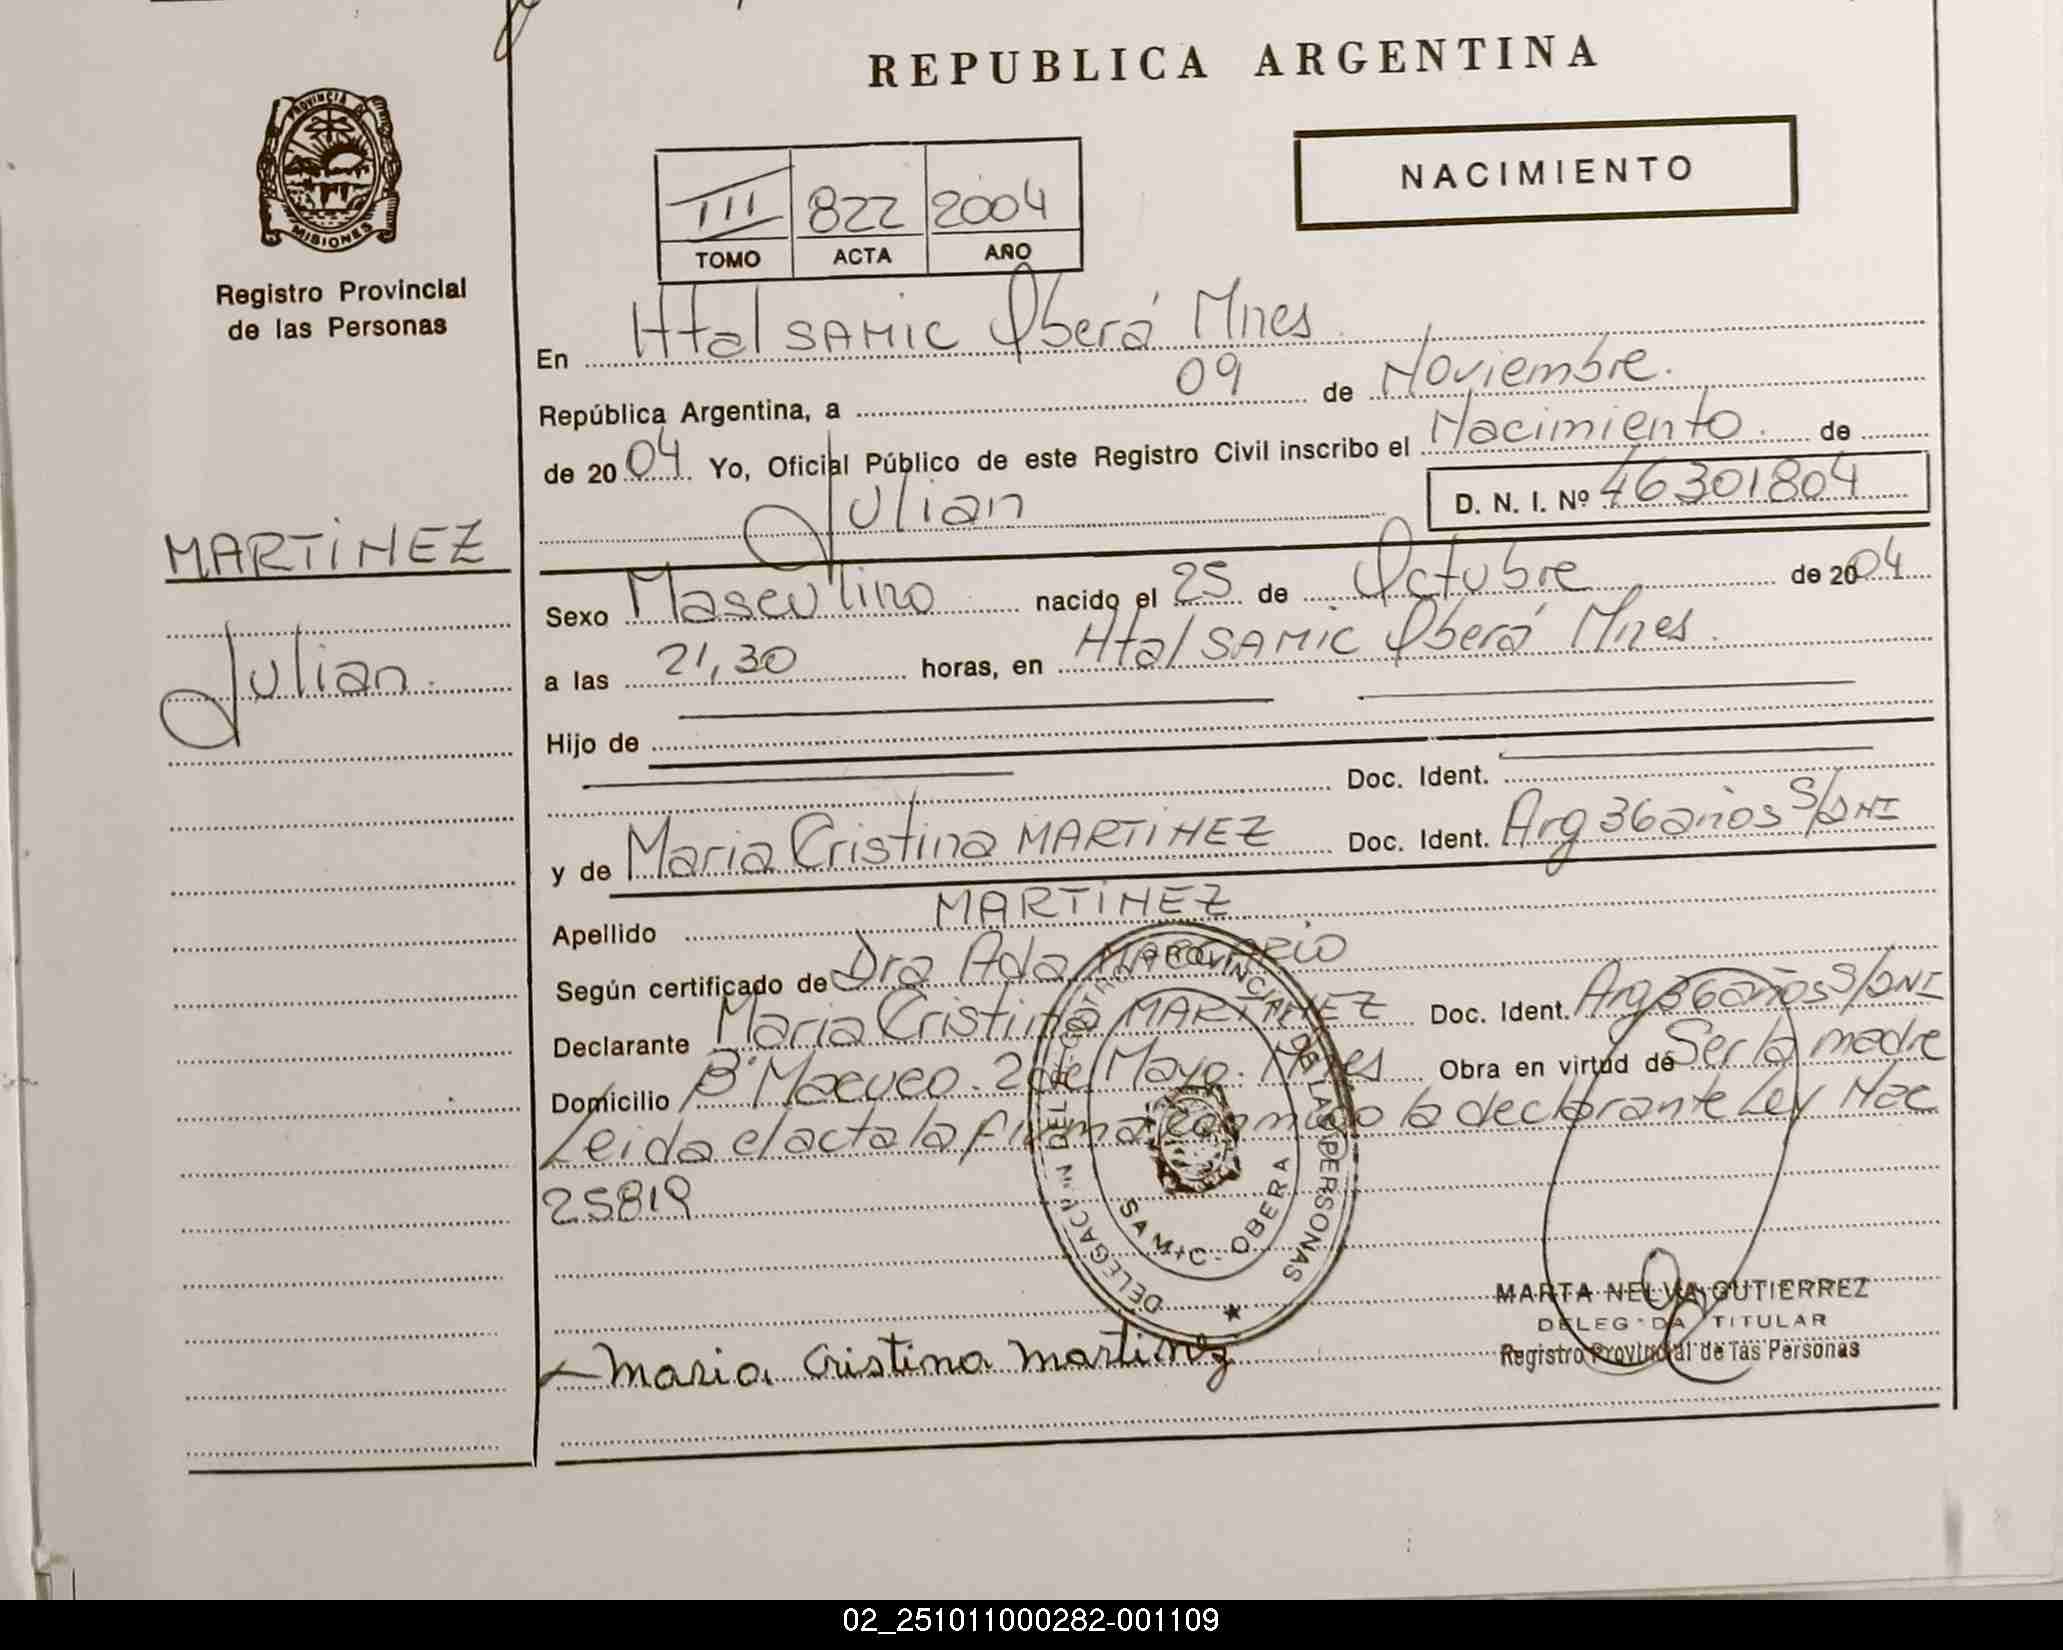 REPUBLICA ARGENTINA
PROVINCIA DE
MISIONES
Registro Provincial
de las Personas
NACIMIENTO
III 822 2004
TOMO ACTA AÑO
En Htal SAMIC Oberá Mnes
República Argentina, a 09 de Noviembre.
de 2004 Yo, Oficial Público de este Registro Civil inscribo el Nacimiento de
Julian D. N. I. Nº 46301804
MARTINEZ
Julian.
Sexo Masculino nacido el 25 de Octubre de 2004
a las 21,30 horas, en Htal SAMIC Oberá Mnes.
Hijo de
Doc. Ident.
y de Maria Cristina MARTINEZ Doc. Ident. Arg 36 años S/DNI
Apellido MARTINEZ
Según certificado de Dra Ada
Declarante Maria Cristina MARTINEZ Doc. Ident. Arg 36 años S/DNI
Domicilio Bº Macuco. 2 de Mayo. Mnes Obra en virtud de Ser la madre
Leida el acta la firma conmigo la declarante Ley Nac
25819
DELEGACION DEL REGISTRO PROVINCIAL DE LAS PERSONAS
SAMIC - OBERA
Maria Cristina Martinez
MARTA NELVA GUTIERREZ
DELEGADA TITULAR
Registro Provincial de las Personas
02_251011000282-001109